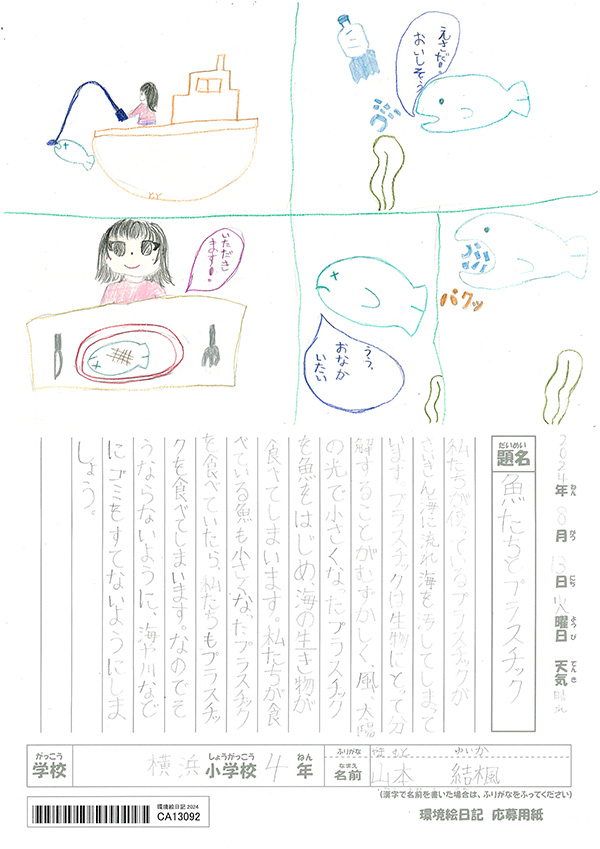 えさだ!
おいしそう
パクッ
うう、
おなか
いたい
いただき
ます!
2024年 8月 13日 火曜日 天気 晴れ
ねん がつ にち ようび てんき
だいめい
題名
魚たちとプラスチック
私たちが使っているプラスチックが
さいきん海に流れ海を汚してしまって
います。プラスチックは生物にとって分
解することがむずかしく、風、太陽
の光で小さくなったプラスチック
を魚をはじめ、海の生き物が
食べてしまいます。私たちが食
べている魚も小さくなったプラスチック
を食べていたら、私たちもプラスチッ
クを食べてしまいます。なのでそ
うならないように、海や川などに
にゴミをすてないようにしま
しょう。
がっこう
学校
横浜 小学校 4年
しょうがっこう ねん
ふりがな
やまもと ゆいか
なまえ
名前
山本 結楓
(漢字で名前を書いた場合は、ふりがなをふってください)
環境絵日記 2024
CA13092
環境絵日記 応募用紙